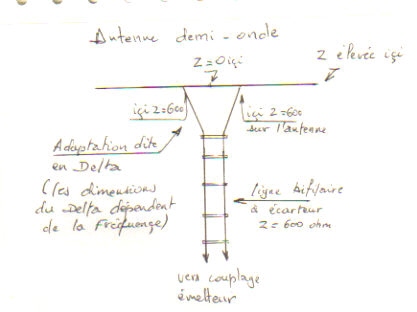 Antenne demi-onde
Z=0 içi
Z élevée içi
içi Z=600
içi Z=600
sur l'antenne
Adaptation dite
en Delta
(les dimensions
du Delta dépendent
de la Fréquence)
ligne bifilaire
à écarteur
Z=600 ohm
vers couplage
émetteur